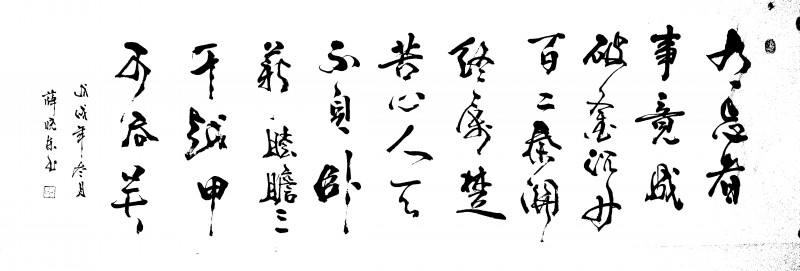 有志者
事竟成
破釜沉舟
百二秦關
終屬楚
苦心人天
不負卧
薪嘗膽三
千越甲
可吞吴
戊戌年冬月
薛晓东书